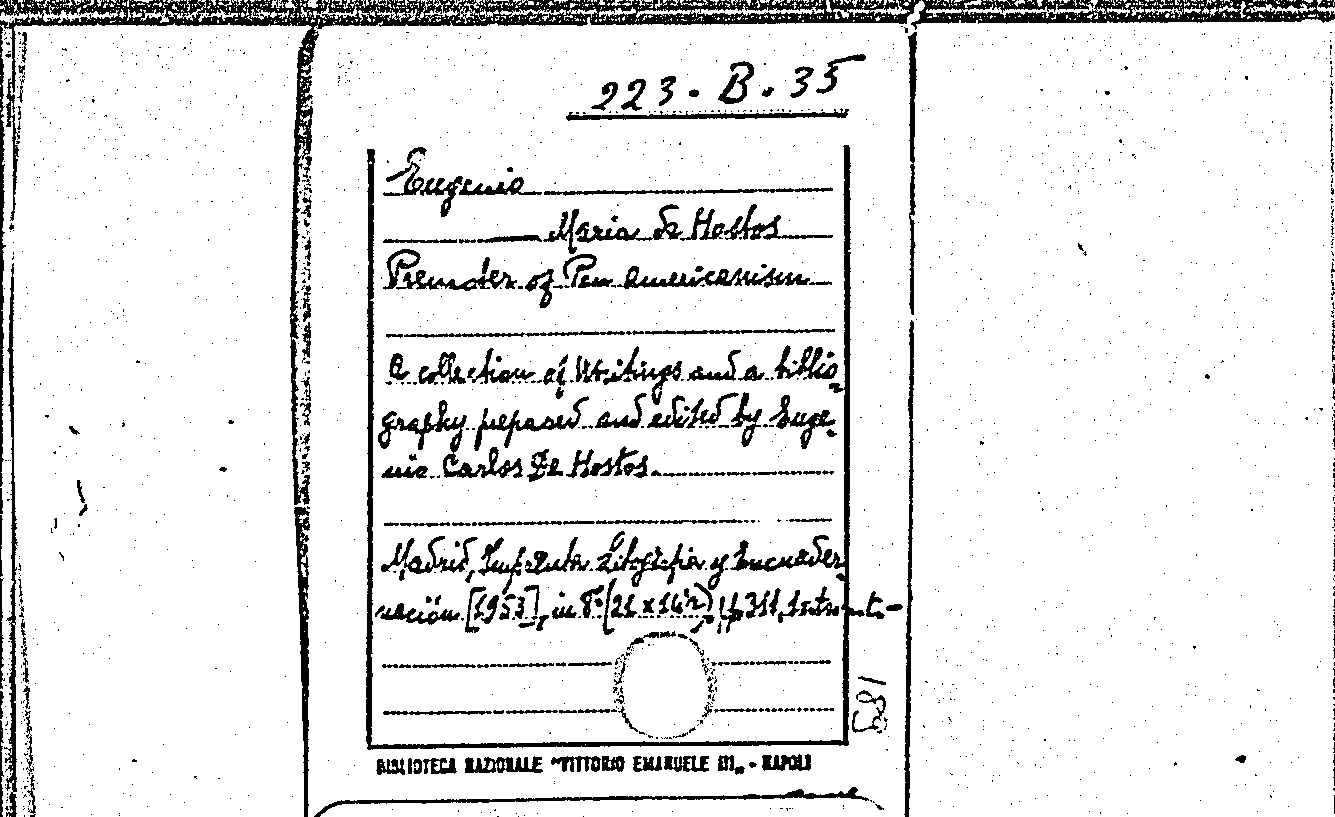 223 - B. 35
Eugenio
Maria de Hostos
Promoter of Pan americanism
A collection of Writings and a biblio-
graphy prepared and edited by Euge-
nio Carlos De Hostos.
Madrid, Imprenta Litografia y Encuader
nación [1953], in 8° (21 x 14½), pp 311,
BIBLIOTECA NAZIONALE "VITTORIO EMANUELE III„ - NAPOLI